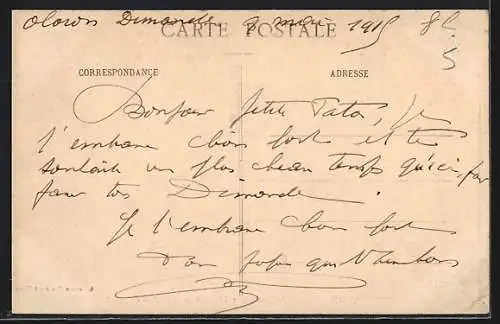 Oloron Dimanche 9 mai 1915
CARTE POSTALE
CORRESPONDANCE
ADRESSE
Bonjour petite Tata, Je
t'embrasse bien fort et te
souhaite un plus beau temps qu'ici, par
Dimanche.
Je t'embrasse bien fort
Ton papa qui